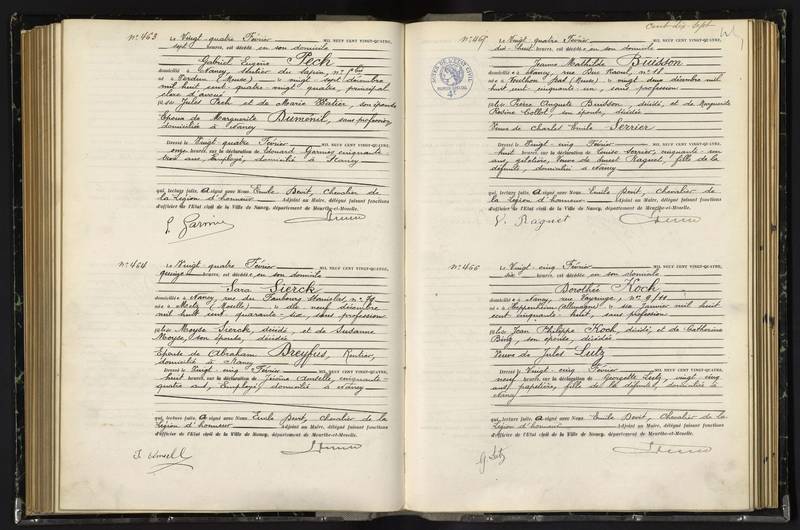 N° 463
Le Vingt-quatre Février MIL NEUF CENT VINGT-QUATRE,
sept heures, est décédé en son domicile
Gabriel Eugène Pech
domicilié à Nancy, du Sapin, n°
né à Verdun (Meuse) le vingt sept décembre
mil huit cent quatre vingt quatre, principal
clerc d'avoué
fils de Jules Pech et de Marie son épouse
Époux de Marguerite Dumenil, sans profession,
domiciliée à Nancy
Dressé le Vingt-quatre Février MIL NEUF CENT VINGT-QUATRE,
onze heures, sur la déclaration de Edouard Garnier cinquante
trois ans, Employé, domicilié à Nancy
qui, lecture faite, a signé avec Nous Emile Devit, Chevalier de
la Légion d'honneur Adjoint au Maire, délégué faisant fonctions
d'officier de l'Etat civil de la Ville de Nancy, département de Meurthe-et-Moselle.
N° 464
Le Vingt-quatre Février MIL NEUF CENT VINGT-QUATRE,
quinze heures, est décédée en son domicile
Sara Sierck
domiciliée à Nancy, rue du Faubourg Stanislas, n° 49
née à Metz (Moselle) le dix neuf décembre
mil huit cent quarante-six, sans profession
fille de Moyse Sierck, décédé, et de Susanne
Moyse, son épouse, décédée
Epouse de Abraham Dreyfus, Rentier,
domicilié à Nancy
Dressé le Vingt-cinq Février MIL NEUF CENT VINGT-QUATRE,
huit heures, sur la déclaration de Jérôme cinquante-
quatre ans, Employé, domicilié à Nancy
qui, lecture faite, a signé avec Nous Emile Devit, Chevalier de la
Légion d'honneur Adjoint au Maire, délégué faisant fonctions
d'officier de l'Etat civil de la Ville de Nancy, département de Meurthe-et-Moselle.
Cent-dix-sept
N° 465
Le Vingt-quatre Février MIL NEUF CENT VINGT-QUATRE,
dix-huit heures, est décédée en son domicile
Jeanne Mathilde Buisson
domiciliée à Nancy, rue n° 18
née à (Meuse) le vingt deux décembre mil
huit cent cinquante un, sans profession
fille de Pierre Auguste Buisson, décédé, et de Marguerite
Collot, son épouse, décédée
Veuve de Charles Emile Serrier
Dressé le Vingt-cinq Février MIL NEUF CENT VINGT-QUATRE,
huit heures, sur la déclaration de Louise Serrier, cinquante-un
ans, giletière, Veuve de Raguet, fille de la
défunte, domiciliée à Nancy
qui, lecture faite, a signé avec Nous Emile Devit, Chevalier de
la Légion d'honneur Adjoint au Maire, délégué faisant fonctions
d'officier de l'Etat civil de la Ville de Nancy, département de Meurthe-et-Moselle.
V. Raguet
N° 466
Le Vingt-cinq Février MIL NEUF CENT VINGT-QUATRE,
six heures, est décédée en son domicile
Dorothée Koch
domiciliée à Nancy, rue Vayringe, n° 9/11
née à Heppenheim (Allemagne) le six Janvier mil huit
cent cinquante-huit, sans profession
fille de Jean Philippe Koch, décédé, et de Catherine
son épouse, décédée
Veuve de Jules Lutz
Dressé le Vingt-cinq Février MIL NEUF CENT VINGT-QUATRE,
neuf heures, sur la déclaration de Georgette Lutz, vingt cinq
ans, papetière, fille de la défunte, domiciliée à
Nancy
qui, lecture faite, a signé avec Nous Emile Devit, Chevalier de la
Légion d'honneur Adjoint au Maire, délégué faisant fonctions
d'officier de l'Etat civil de la Ville de Nancy, département de Meurthe-et-Moselle.
G. Lutz